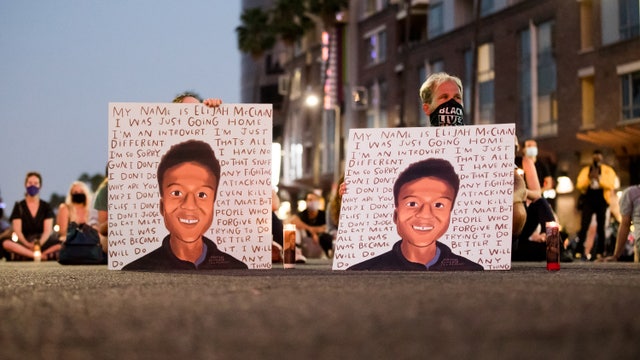 MY NAME IS ELIJAH MCCLAIN
I WAS JUST GOING HOME
I'M AN INTROVERT I'M JUST
DIFFERENT THAT'S ALL
I'M SO SORRY I HAVE NO
GUN I DON'T DO THAT STUFF
I DON'T DO ANY FIGHTING
WHY ARE YOU ATTACKING
ME? I DON'T EVEN KILL
FLIES I DON'T EAT MEAT
I DON'T JUDGE PEOPLE WHO
EAT MEAT FORGIVE ME
ALL I WAS TRYING TO DO
WAS BECOME BETTER
I WILL DO IT I WILL
DO ANY THING
BLACK
LIVES
MY NAME IS ELIJAH MCCLAIN
I WAS JUST GOING HOME
I'M AN INTROVERT I'M JUST
DIFFERENT THAT'S ALL
I'M SO SORRY I HAVE NO
GUN I DON'T DO THAT STUFF
I DON'T DO ANY FIGHTING
WHY ARE YOU ATTACKING
ME? I DON'T EVEN KILL
FLIES I DON'T EAT MEAT BUT
I DON'T JUDGE PEOPLE WHO
DO EAT MEAT FORGIVE ME
ALL I WAS TRYING TO DO
WAS BECOME BETTER
I WILL DO IT I WILL
DO ANY THING